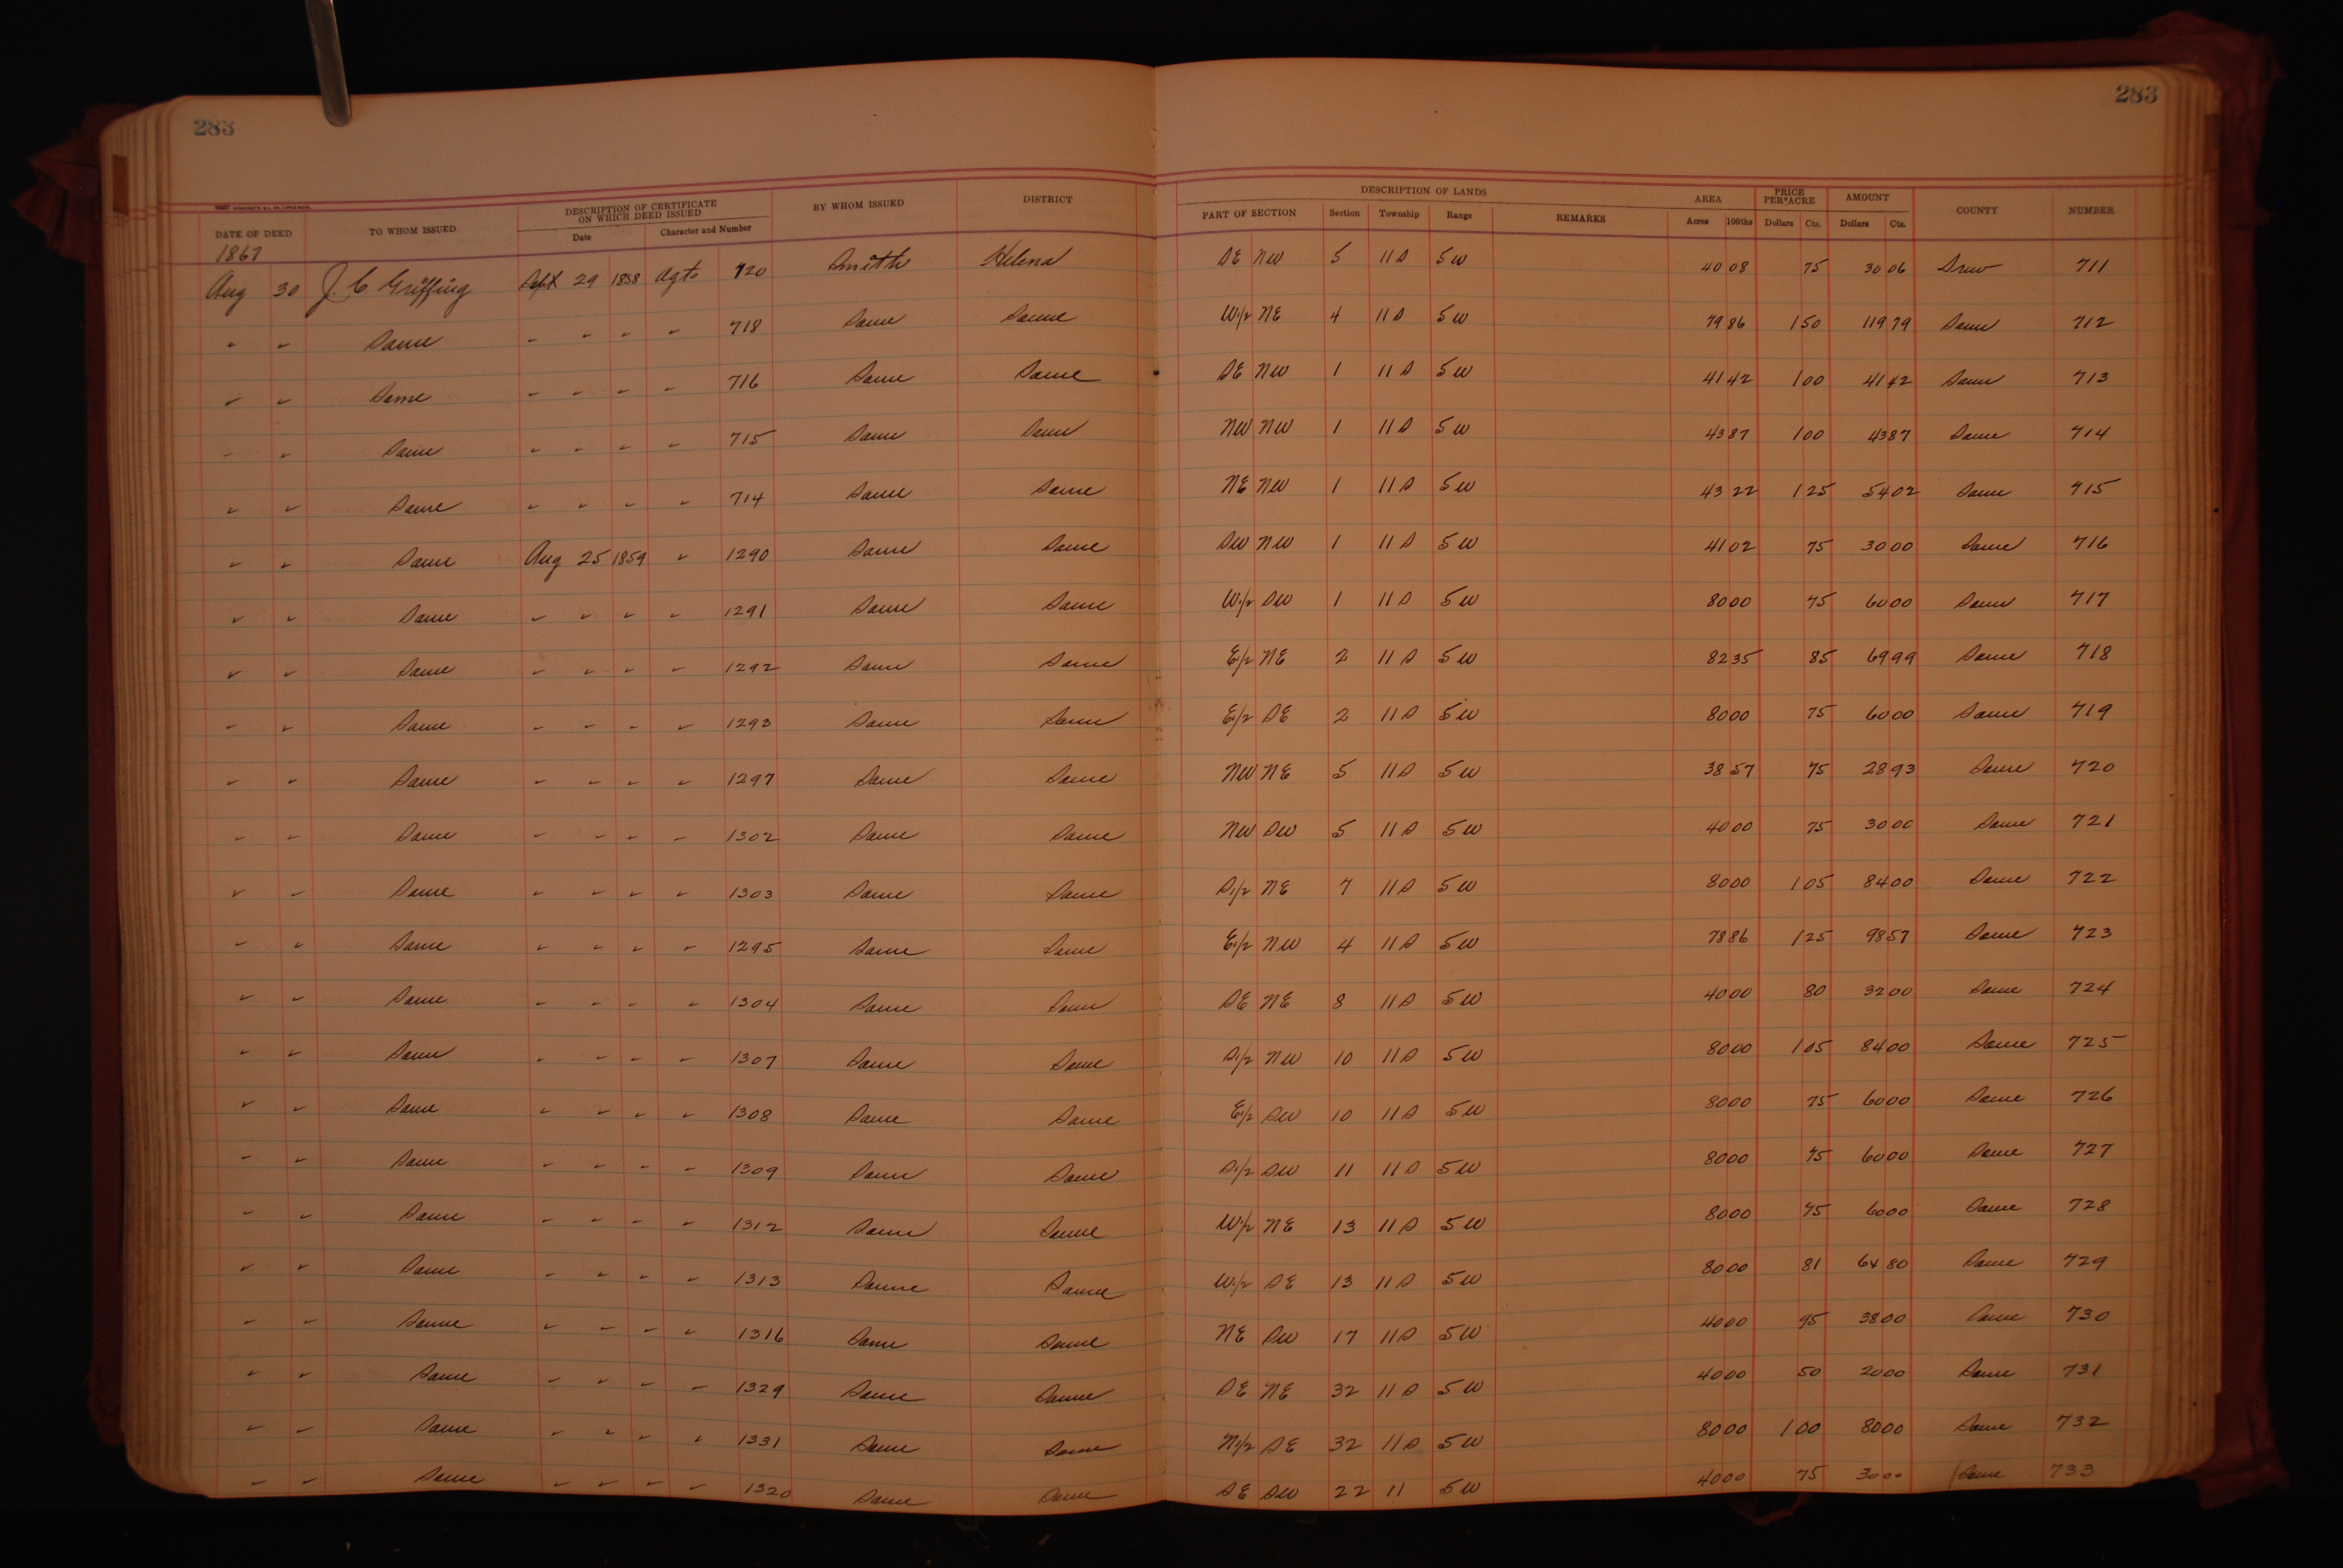 283 283
DESCRIPTION OF CERTIFICATE ON WHICH DEED ISSUED DESCRIPTION OF LANDS AREA PRICE PER ACRE AMOUNT
DATE OF DEED TO WHOM ISSUED Date Character and Number BY WHOM ISSUED DISTRICT PART OF SECTION Section Township Range REMARKS Acres 100ths Dollars Cts. Dollars Cts. COUNTY NUMBER
1867
Aug 30 J. C. Griffing Sept 29 1858 Agts 720 Smith Helena SE NW 5 11 S 5 W 40 08 75 30 06 Drew 711
" " Same " " " " 718 Same Same W1/2 NE 4 11 S 5 W 79 86 1 50 119 79 Same 712
" " Same " " " " 716 Same Same SE NW 1 11 S 5 W 41 42 1 00 41 42 Same 713
" " Same " " " " 715 Same Same NW NW 1 11 S 5 W 43 87 1 00 43 87 Same 714
" " Same " " " " 714 Same Same NE NW 1 11 S 5 W 43 22 1 25 54 02 Same 715
" " Same Aug 25 1859 " 1290 Same Same SW NW 1 11 S 5 W 41 02 75 30 00 Same 716
" " Same " " " " 1291 Same Same W1/2 SW 1 11 S 5 W 80 00 75 60 00 Same 717
" " Same " " " " 1292 Same Same E1/2 NE 2 11 S 5 W 82 35 85 69 99 Same 718
" " Same " " " " 1293 Same Same E1/2 SE 2 11 S 5 W 80 00 75 60 00 Same 719
" " Same " " " " 1297 Same Same NW NE 5 11 S 5 W 38 57 75 28 93 Same 720
" " Same " " " " 1302 Same Same NW SW 5 11 S 5 W 40 00 75 30 00 Same 721
" " Same " " " " 1303 Same Same S1/2 NE 7 11 S 5 W 80 00 1 05 84 00 Same 722
" " Same " " " " 1295 Same Same E1/2 NW 4 11 S 5 W 78 86 1 25 98 57 Same 723
" " Same " " " " 1304 Same Same SE NE 8 11 S 5 W 40 00 80 32 00 Same 724
" " Same " " " " 1307 Same Same S1/2 NW 10 11 S 5 W 80 00 1 05 84 00 Same 725
" " Same " " " " 1308 Same Same E1/2 SW 10 11 S 5 W 80 00 75 60 00 Same 726
" " Same " " " " 1309 Same Same S1/2 SW 11 11 S 5 W 80 00 75 60 00 Same 727
" " Same " " " " 1312 Same Same W1/2 NE 13 11 S 5 W 80 00 75 60 00 Same 728
" " Same " " " " 1313 Same Same W1/2 SE 13 11 S 5 W 80 00 81 64 80 Same 729
" " Same " " " " 1316 Same Same NE SW 17 11 S 5 W 40 00 95 38 00 Same 730
" " Same " " " " 1329 Same Same SE NE 32 11 S 5 W 40 00 50 20 00 Same 731
" " Same " " " " 1331 Same Same N1/2 SE 32 11 S 5 W 80 00 1 00 80 00 Same 732
" " Same " " " " 1320 Same Same SE SW 22 11 5 W 40 00 75 30 00 Same 733